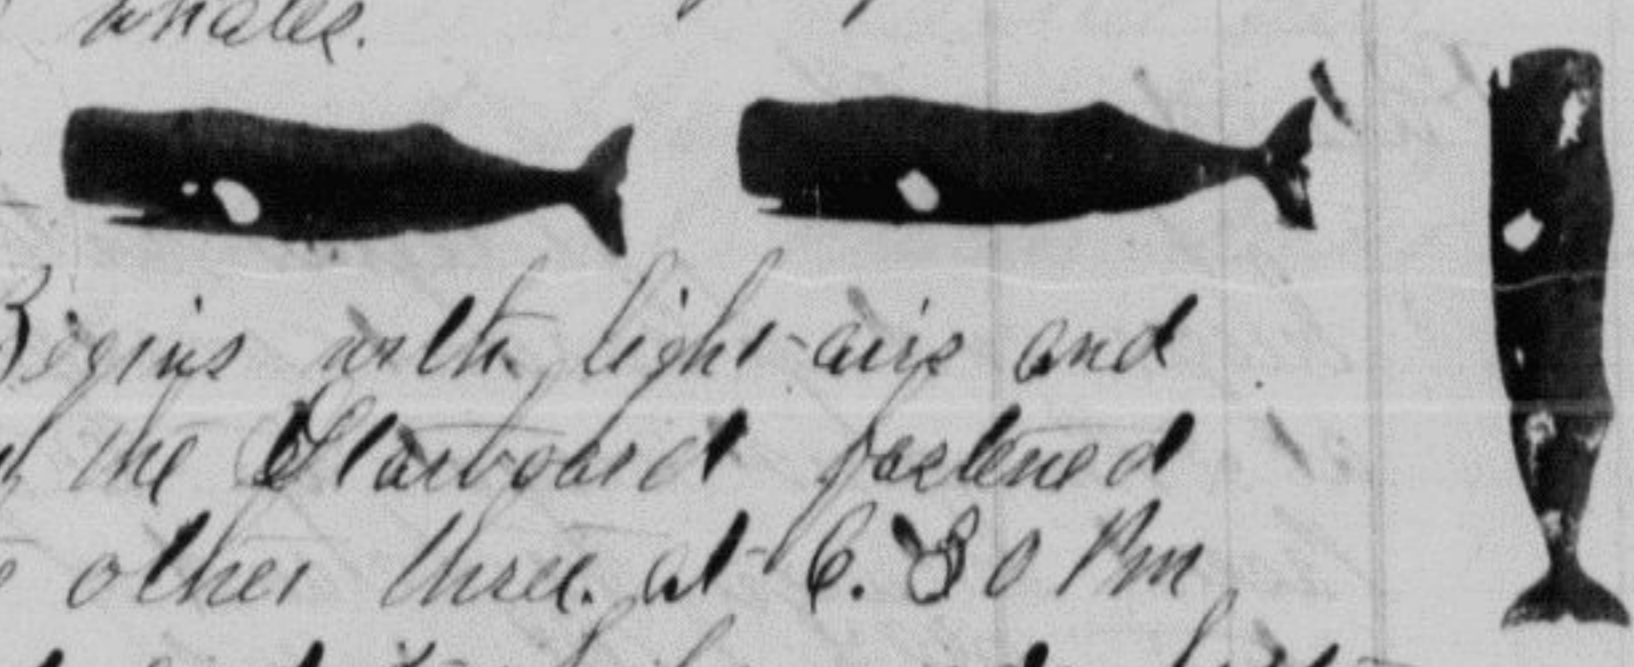 whales.
Begins with light airs and
the Starboard fastened
other three. at 6.30 Pm